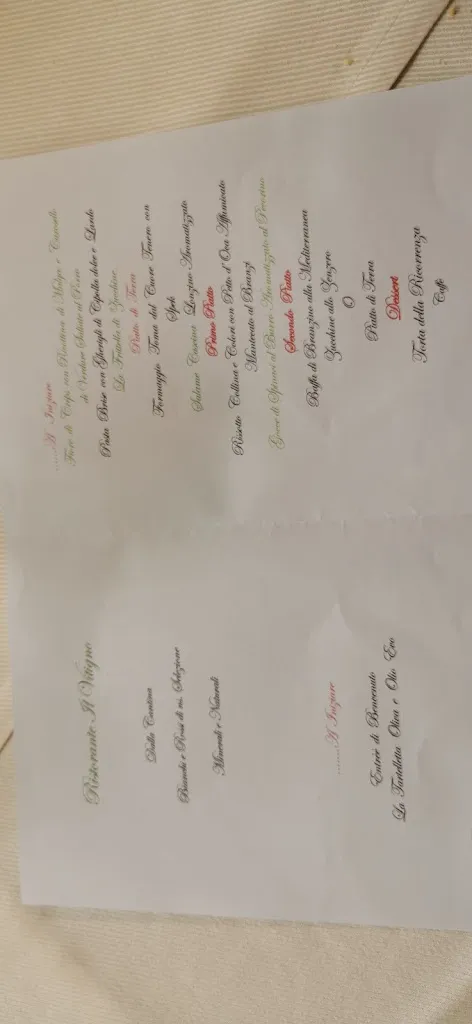 Ristorante Il Vitigno
Dalla Cantina
Bianchi e Rossi di ns. Selezione
Minerali e Naturali
.......A Iniziare
Entrée di Benvenuto
La Tartelletta Oliva e Olio Evo
......A Iniziare
Fiore di con Ricottina di Malga e
di Verdure Saltate al Porro
Pasta Brise con Gherigli di Cipolla dolce e Lardo
La Fritella di Zucchine
Piatto di Terra
Formaggio Toma del Cuore Tenero con
Speh
Salame Cascina Lonzino Aromatizzato
Primo Piatto
Risotto Collina e Colori con Petto d'Oca Affumicato
Mantecato al Branzi
di Spinaci al Burro Aromatizzato al Pecorino
Secondo Piatto
di Branzino alla Mediterranea
Zucchine allo Zenzero
O
Piatto di Terra
Dessert
Torta della Ricorrenza
Caffè